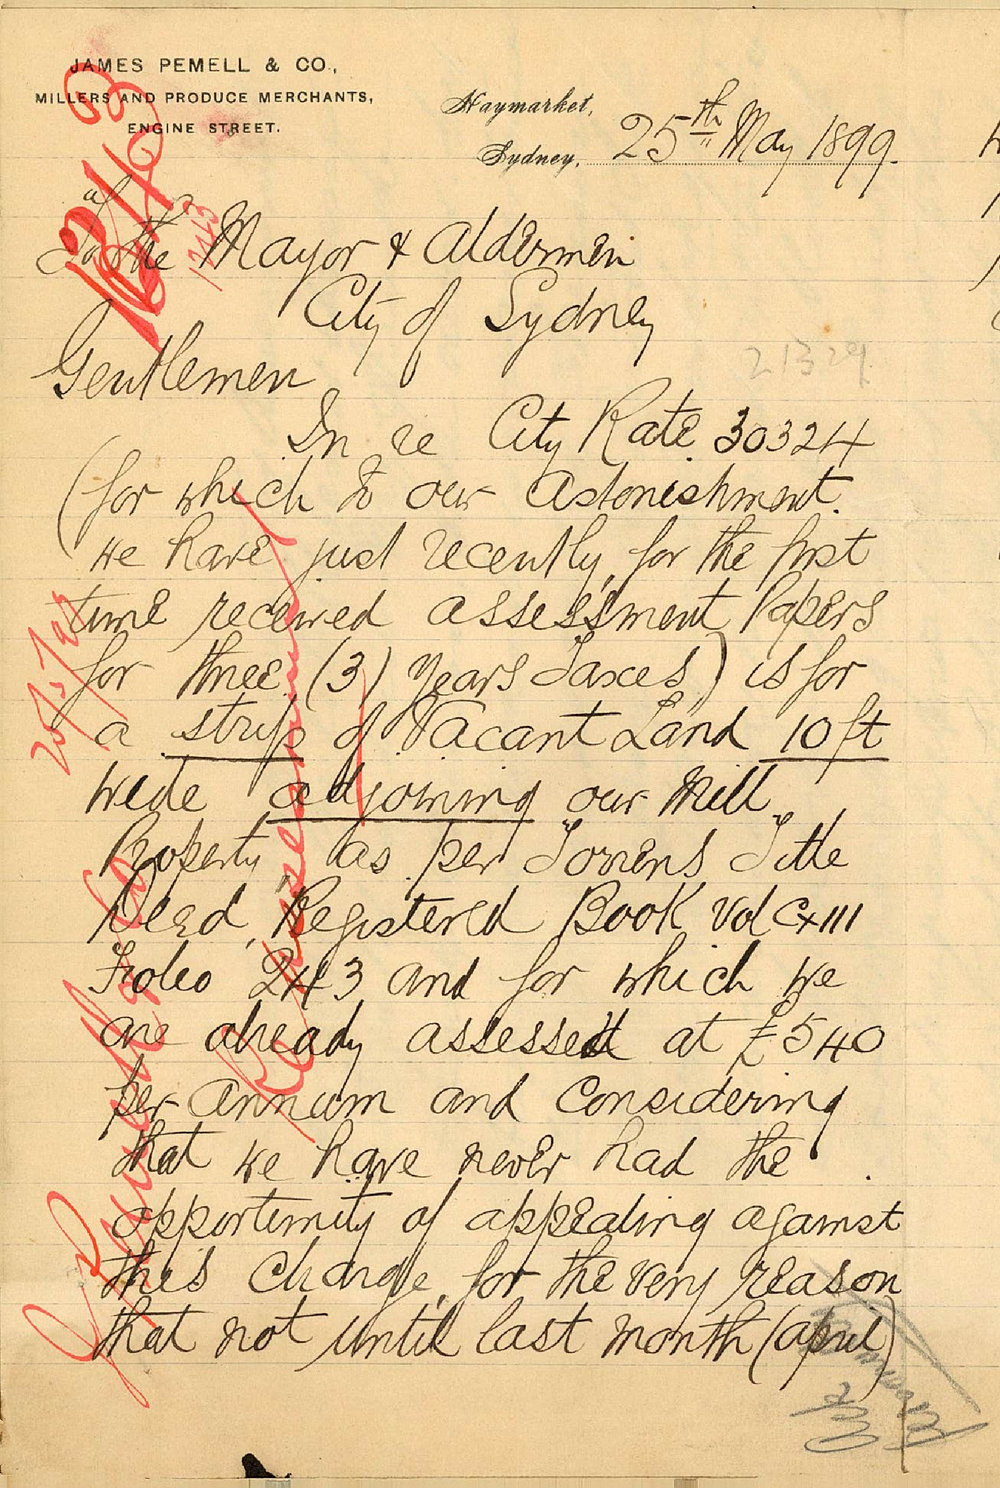 JAMES PEMELL & CO.,
MILLERS AND PRODUCE MERCHANTS,
ENGINE STREET.
Haymarket,
Sydney, 25th May 1899.
To the Mayor & Aldermen
City of Sydney
21329
Gentlemen
In re City Rate 30324
(for which to our astonishment.
we have just recently, for the first
time received assessment Papers
for three (3) Years Taxes) is for
a strip of Vacant Land 10 ft
wide adjoining our Mill
Property, as per Torrens Title
Deed, Registered Book Vol CXIII
Folio 243 and for which we
are already assessed at £540
per annum and considering
that we have never had the
opportunity of appealing against
this Charge, for the very reason
that not until last month (april)